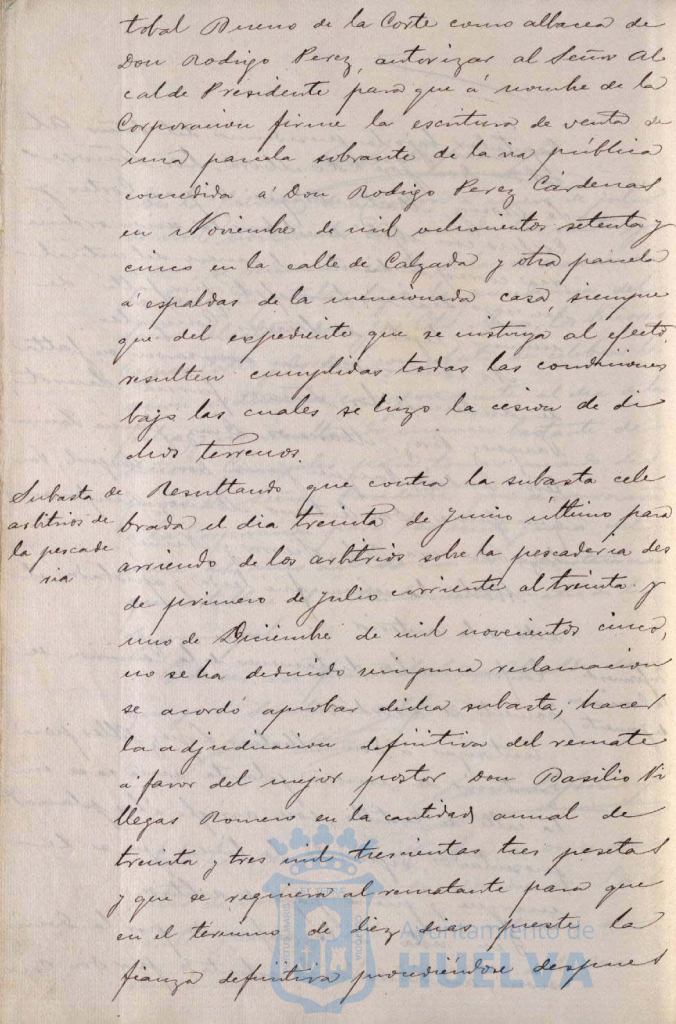 tobal Bueno de la Corte como albacea de
Don Rodrigo Perez, autorizar al Señor Al
calde Presidente para que á nombre de la
Corporacion firme la escritura de venta de
una parcela sobrante de la via pública
concedida á Don Rodrigo Perez Cárdenas
en Noviembre de mil ochocientos setenta y
cinco en la calle de Calzada y otra parcela
á espaldas de la mencionada casa, siempre
que del expediente que se instruya al efecto,
resulten cumplidas todas las condiciones
bajo las cuales se hizo la cesion de di
chos terrenos.
Subasta de
arbitrios de
la pescade
ria
Resultando que contra la subasta cele
brada el dia treinta de Junio último para
arriendo de los arbitrios sobre la pescaderia des
de primero de Julio corriente al treinta y
uno de Diciembre de mil novecientos cinco,
no se ha deducido ninguna reclamacion
se acordó aprobar dicha subasta, hacer
la adjudicacion definitiva del remate
á favor del mejor postor Don Basilio Vi
llegas Romero en la cantidad anual de
treinta y tres mil trescientas tres pesetas
y que se requiera al rematante para que
en el término de diez dias preste la
fianza definitiva procediéndose despues
Ayuntamiento de
HUELVA